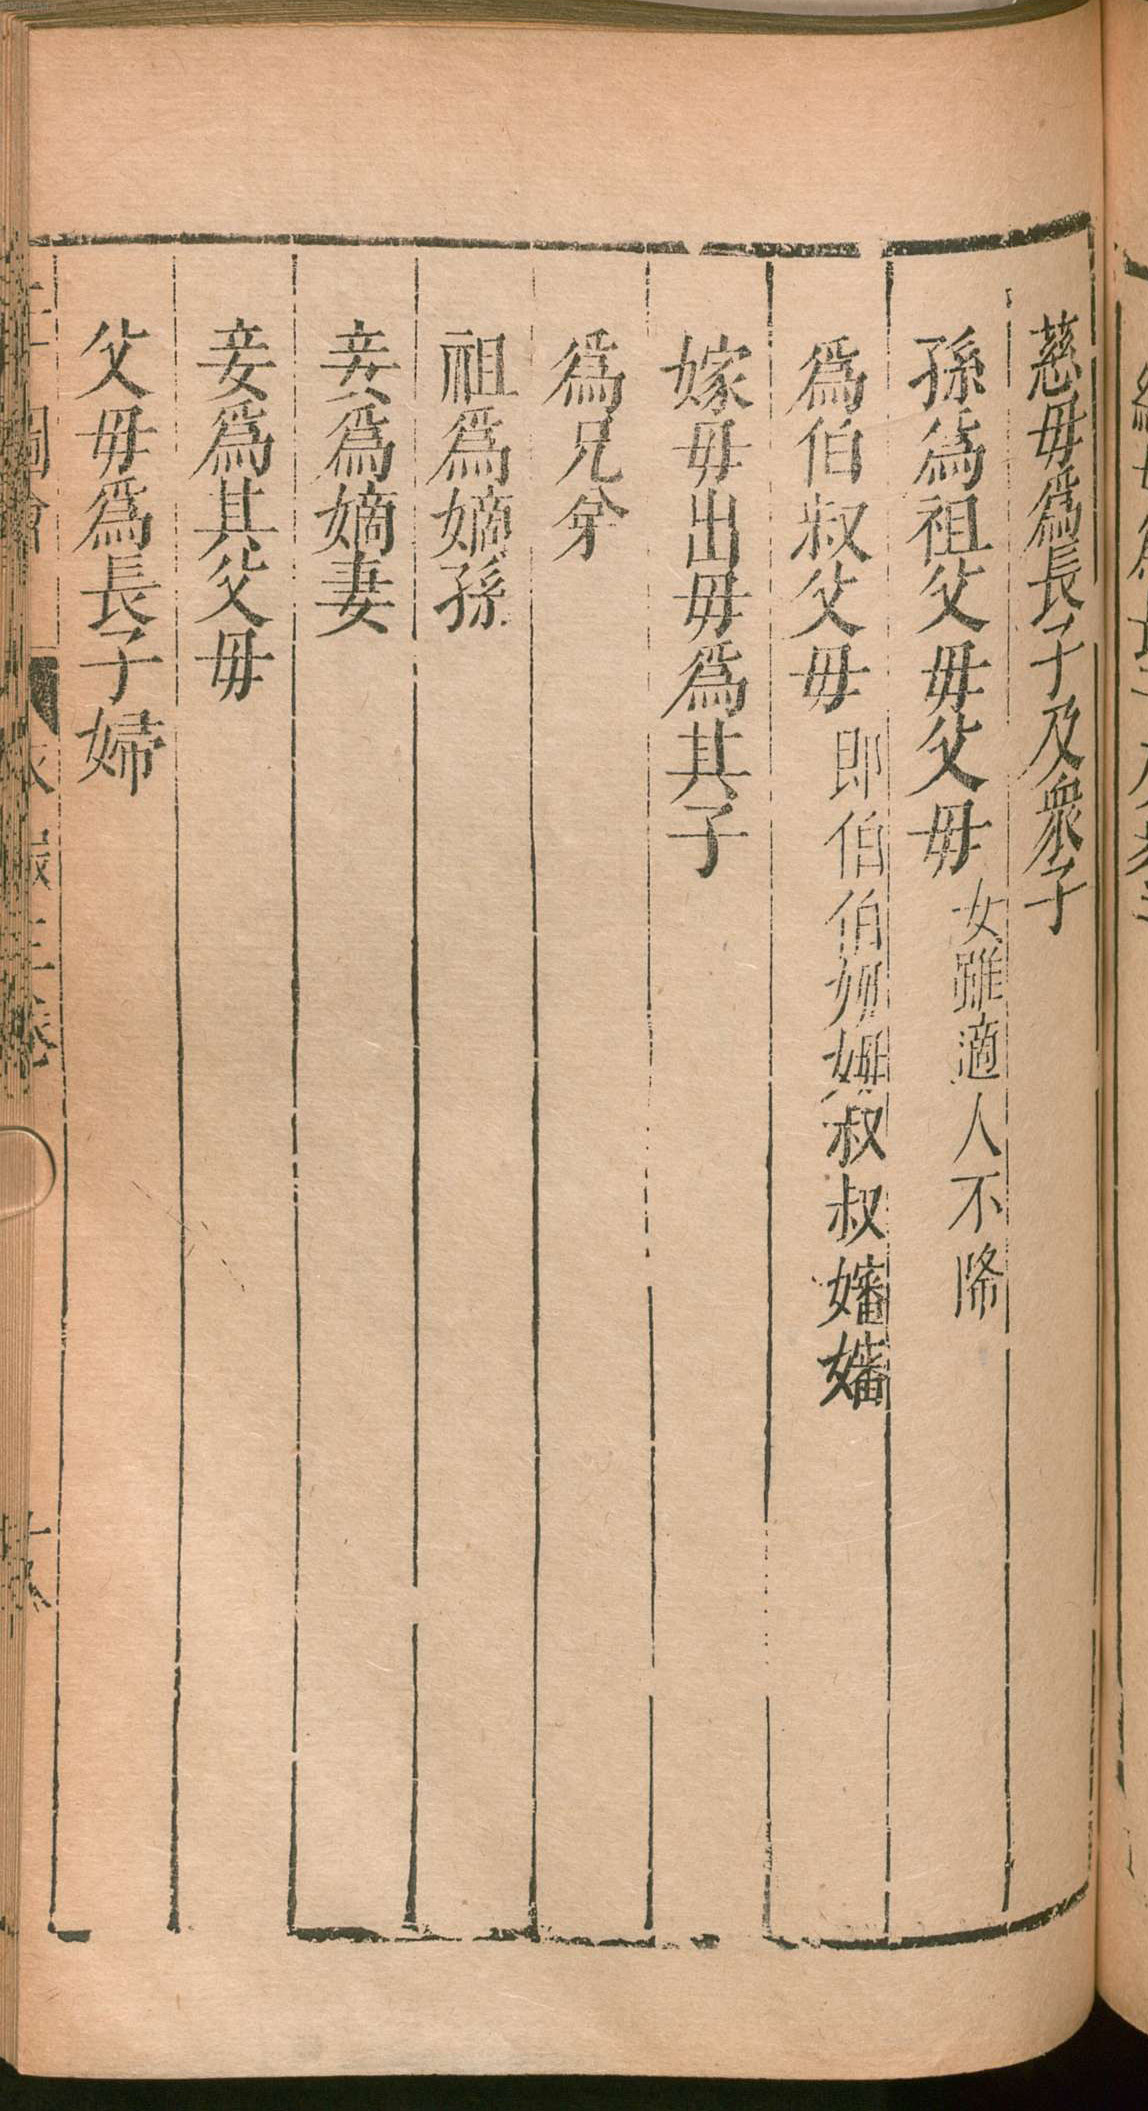 慈母為長子及衆子
孫為祖父母父母女雖適人不降
為伯叔父母即伯伯姆姆叔叔嬸嬸
嫁母出母為其子
為兄弟
祖為嫡孫
妾為嫡妻
妾為其父母
父母為長子婦